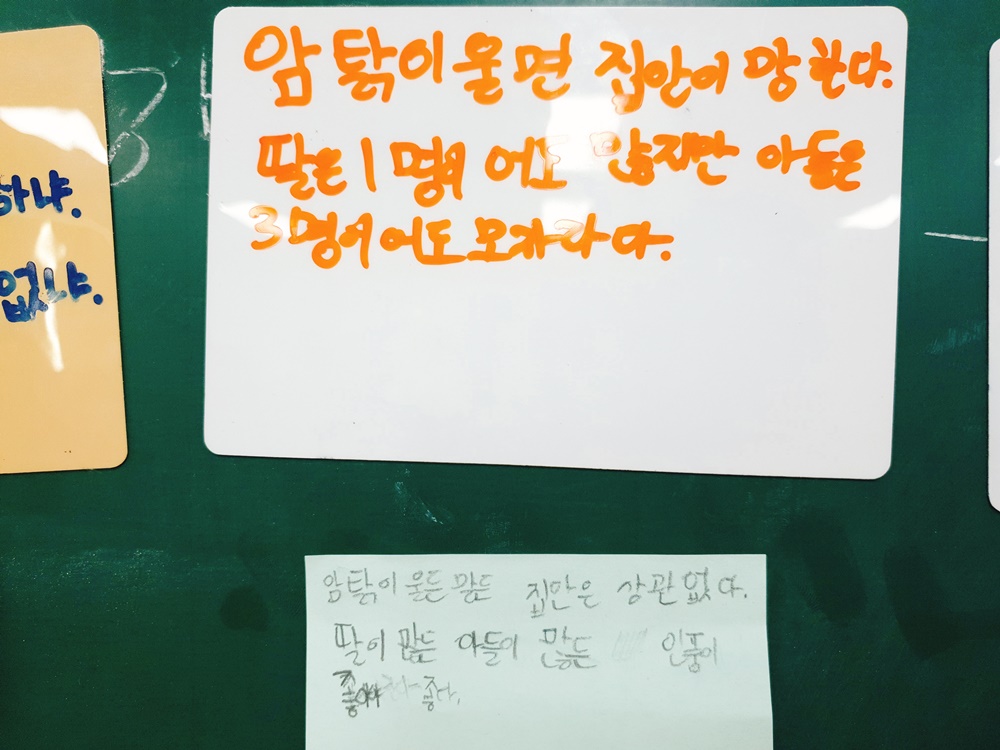 하냐.
없냐.
암탉이 울면 집안이 망한다.
딸은 1명이어도 많지만 아들은
3명이어도 모자라다.
암탉이 울든 말든 집안은 상관없다.
딸이 많든 아들이 많든 인품이
좋다.